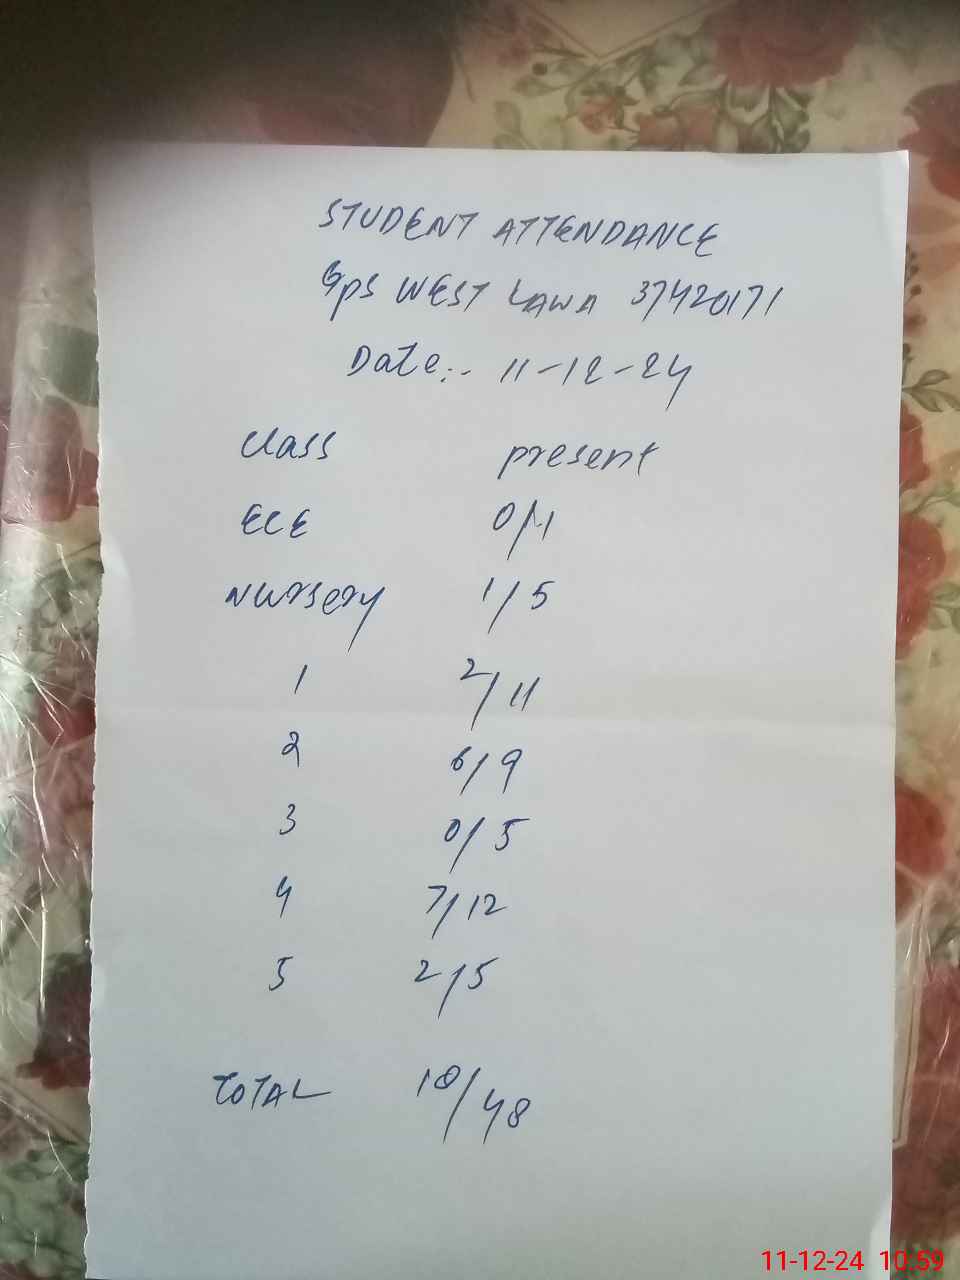 STUDENT ATTENDANCE
GPS WEST LAWA 37420171
Date:- 11-12-24
Class present
ECE 0/1
Nursery 1/5
1 2/11
2 6/9
3 0/5
4 7/12
5 2/5
TOTAL 18/48
11-12-24 10:59